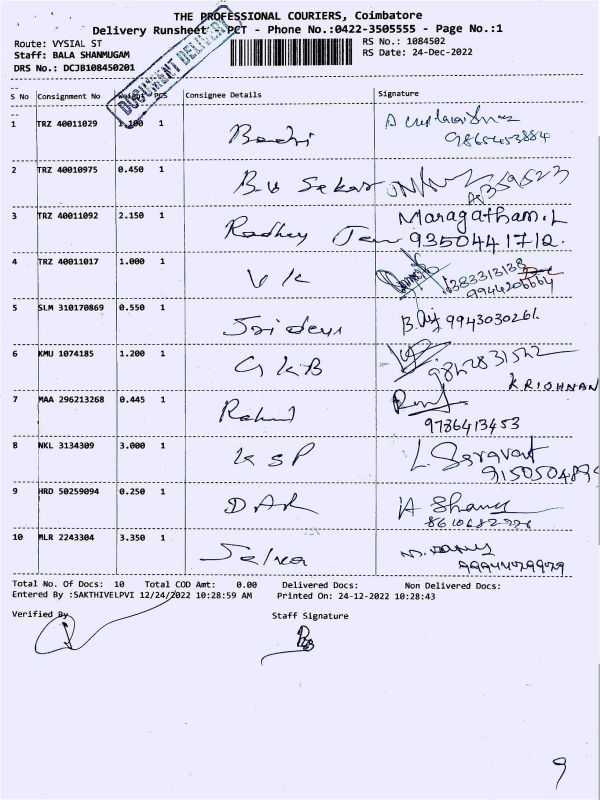 THE PROFESSIONAL COURIERS, Coimbatore
Delivery Runsheet - PCT - Phone No.:0422-3505555 - Page No.:1
Route: VYSIAL ST
RS No.: 1084502
Staff: BALA SHANMUGAM
RS Date: 24-Dec-2022
DRS No.: DCJB108450201
DOCUMENT DELIVERY
S No Consignment No Weight PCS Consignee Details Signature
1 TRZ 40011029 1.100 1 Badri
9865453884
2 TRZ 40010975 0.450 1 B.V Sekar
3 TRZ 40011092 2.150 1 Radhey Maragatham.L
9350441712.
4 TRZ 40011017 1.000 1 V K
9944206664
5 SLM 310170869 0.550 1 Sridevi 9943030261.
6 KMU 1074185 1.200 1 GKB 9842831542
KRISHNAN
7 MAA 296213268 0.445 1 Rahul
9786413453
8 NKL 3134309 3.000 1 KSP L. Saravat
915050489
9 HRD 50259094 0.250 1 DAR
10 MLR 2243304 3.350 1
Total No. Of Docs: 10 Total COD Amt: 0.00 Delivered Docs: Non Delivered Docs:
Entered By :SAKTHIVELPVI 12/24/2022 10:28:59 AM Printed On: 24-12-2022 10:28:43
Verified By Staff Signature
9